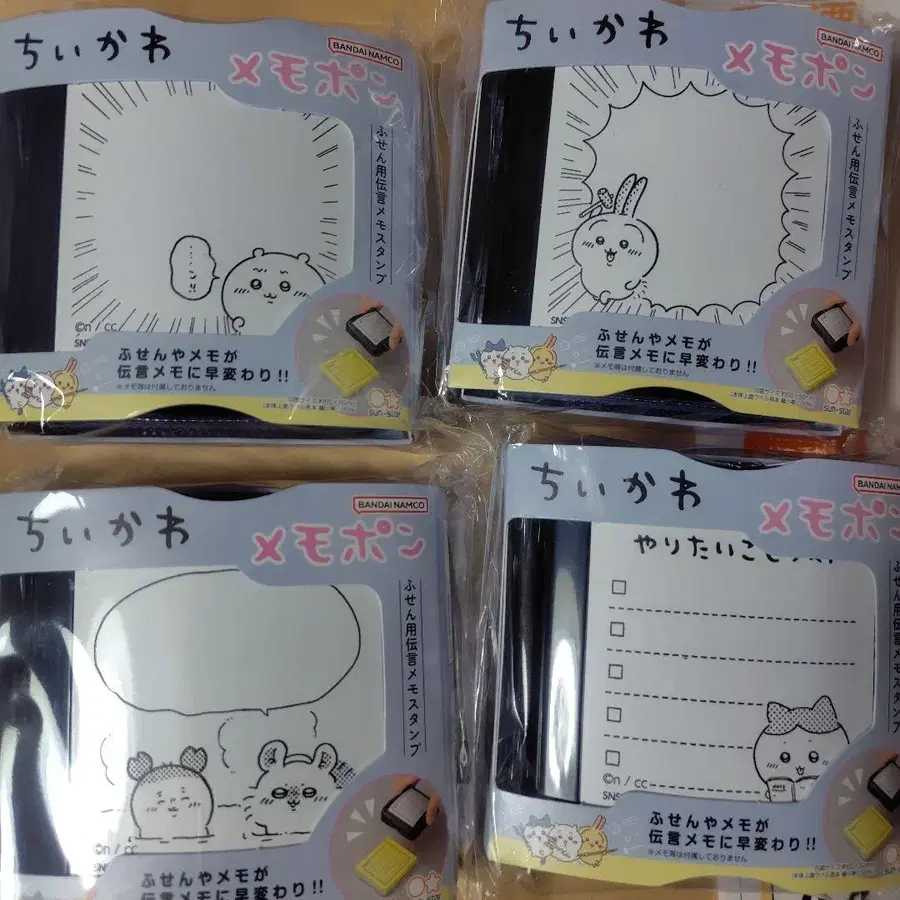 ちいかわ
BANDAI NAMCO
メモポン
ふせん用伝言メモスタンプ
©n / cc
ふせんやメモが
伝言メモに早変わり!!
※メモ等は付属しておりません
sun-star
ちいかわ
BANDAI NAMCO
メモポン
ふせん用伝言メモスタンプ
SNS
ふせんやメモが
伝言メモに早変わり!!
※メモ等は付属しておりません
sun-star
ちいかわ
BANDAI NAMCO
メモポン
ふせん用伝言メモスタンプ
©n / cc
ふせんやメモが
伝言メモに早変わり!!
ちいかわ
BANDAI NAM
メモポン
やりたいこ
ふせん用伝言メモスタンプ
©n / cc
SNS
ふせんやメモが
伝言メモに早変わり!!
※メモ等は付属しておりません